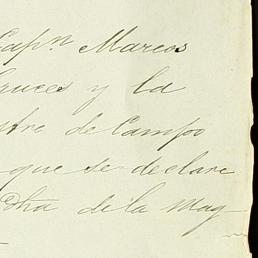 Capn Marcos
Cruces y la
stre de Campo
que se declare
dha de la Mag-